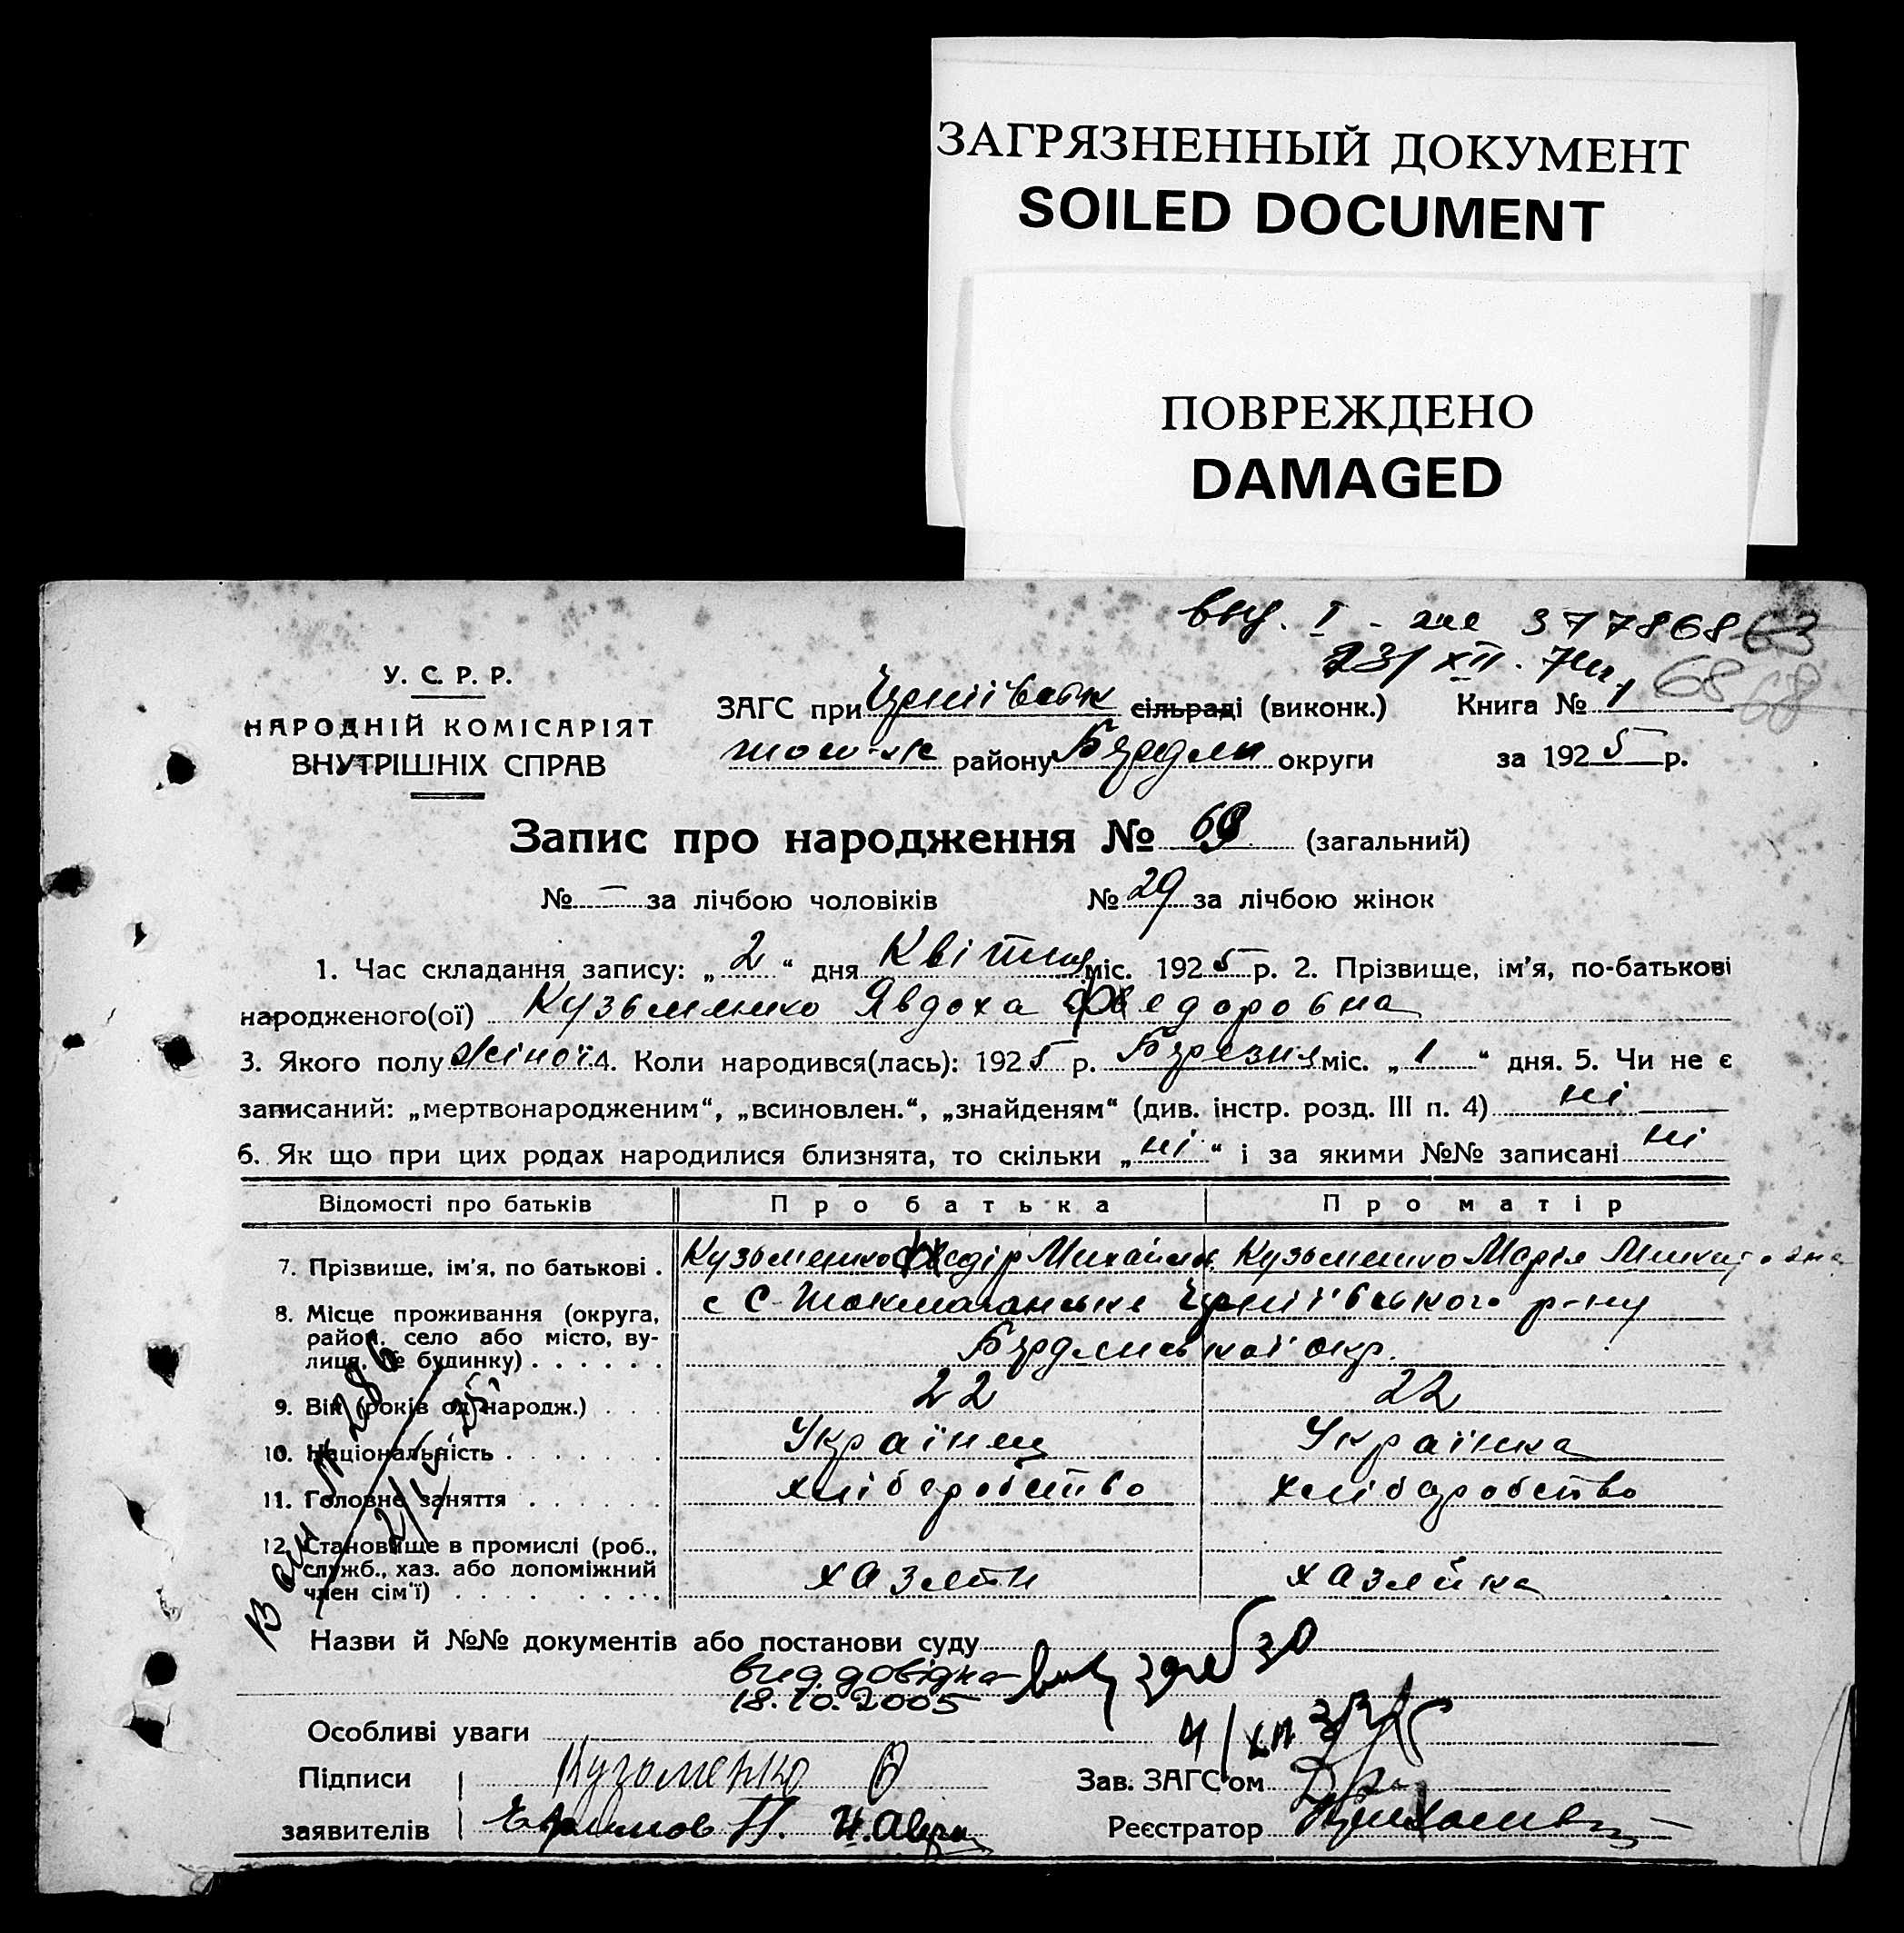 ЗАГРЯЗНЕННЫЙ ДОКУМЕНТ
SOILED DOCUMENT
ПОВРЕЖДЕНО
DAMAGED
вид. I - 377868 63
23/XII. 68 68
У. С. Р. Р.
НАРОДНІЙ КОМІСАРІЯТ
ВНУТРІШНІХ СПРАВ
ЗАГС при сільраді (виконк.) Книга № 1
району округи за 1925 р.
Запис про народження № 68 (загальний)
№ — за лічбою чоловіків № 29 за лічбою жінок
1. Час складання запису: „ 2 “ дня Квітня міс. 1925 р. 2. Прізвище, ім'я, по-батькові
народженого(ої) Кузьменко Явдоха Федоровна
3. Якого полу жіної 4. Коли народився(лась): 1925 р. Березня міс. „ 1 “ дня. 5. Чи не є
записаний: „мертвонародженим“, „всиновлен.“, „знайденям“ (див. інстр. розд. III п. 4) ні
6. Як що при цих родах народилися близнята, то скільки „ ні “ і за якими №№ записані ні
Відомості про батьків Про батька Про матір
7. Прізвище, ім'я, по батькові . Кузьменко Федір Михайлов. Кузьменко Марія Микитовна
8. Місце проживання (округа, район, село або місто, вулиця, № будинку) . . . . . . с р-ну
окр.
9. Вік (років од народж.) . . . 22 22
10. Національність . . . . . . . Українец Українка
11. Головне заняття . . . . . . хліборобство хліборобство
12. Становище в промислі (роб., служб., хаз. або допоміжний член сім'ї) . . . . . . . . хазяїн хазяйка
Назви й №№ документів або постанови суду
вид. довідка
18.10.2005
Особливі уваги
Підписи Кузьменко Зав. ЗАГС'ом
заявителів Реєстратор